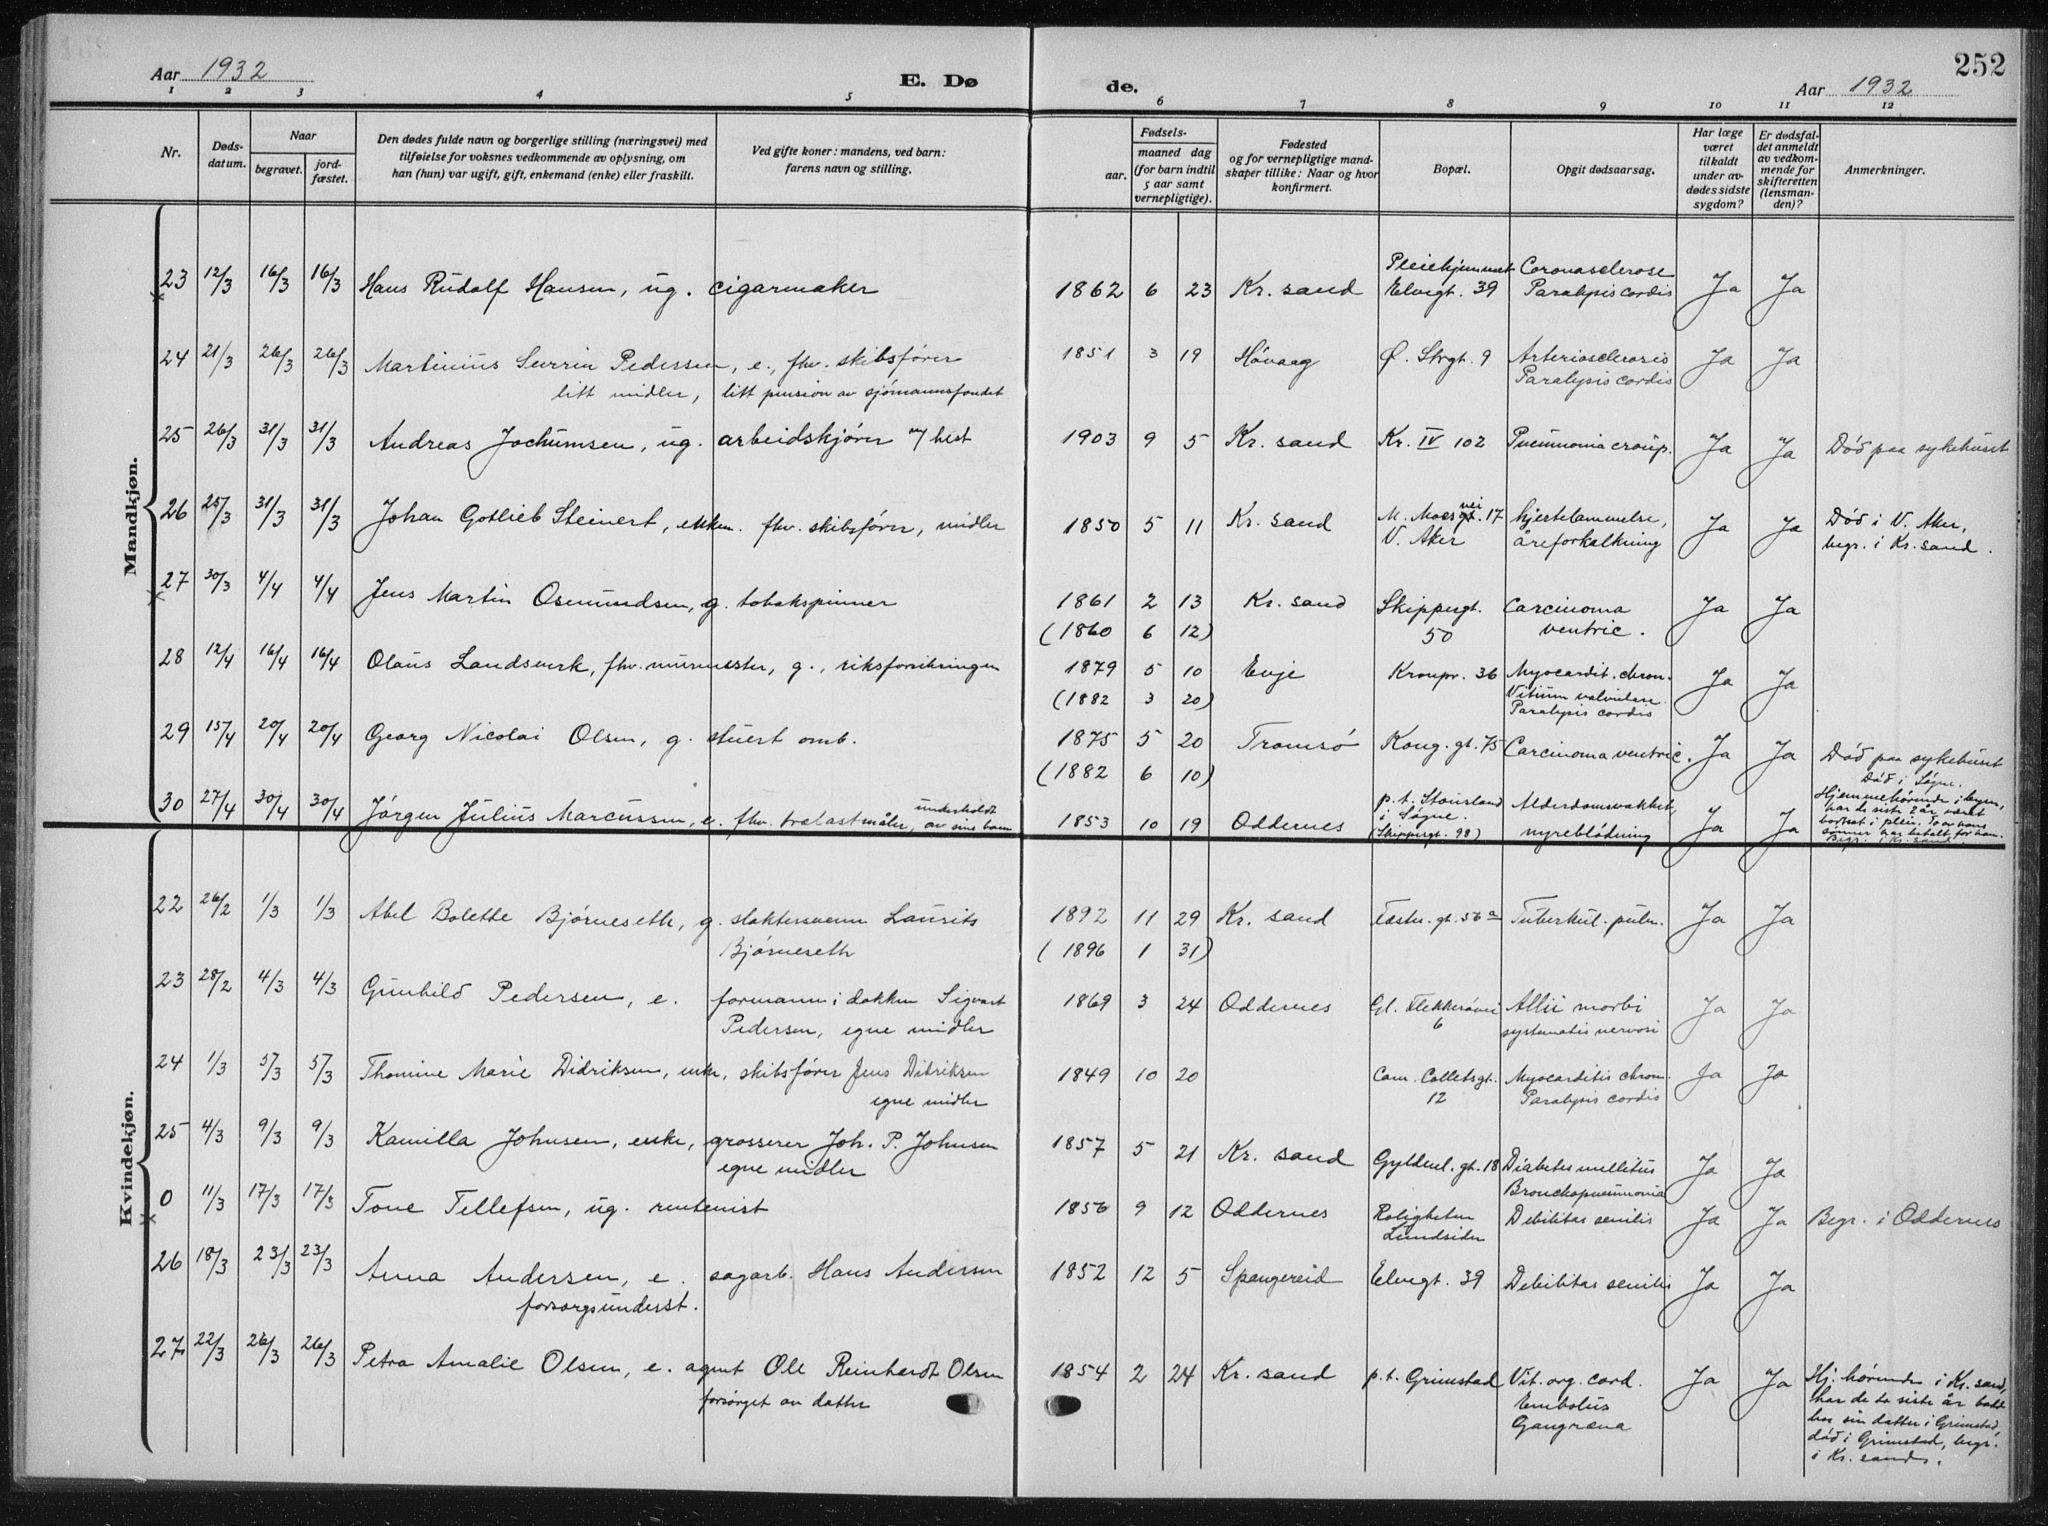 252
Aar 1932
E. Døde.
Aar 1932
1 2 3 4 5 6 7 8 9 10 11 12
Nr.
Døds-
datum.
Naar
begravet.
jord-
fæstet.
Den dødes fulde navn og borgerlige stilling (næringsvei) med
tilføielse for voksnes vedkommende av oplysning, om
han (hun) var ugift, gift, enkemand (enke) eller fraskilt.
Ved gifte koner: mandens, ved barn:
farens navn og stilling.
Fødsels-
aar. maaned dag
(for barn indtil
5 aar samt
vernepligtige).
Fødested
og for vernepligtige mand-
skaper tillike: Naar og hvor
konfirmert.
Bopæl.
Opgit dødsaarsag.
Har læge
været
tilkaldt
under av-
dødes sidste
sygdom?
Er dødsfal-
det anmeldt
av vedkom-
mende for
skifteretten
(lensman-
den)?
Anmerkninger.
Mandkjøn.
23 12/3 16/3 16/3 Hans Rudolf Hansen, ug. cigarmaker 1862 6 23 Kr. sand Pleiehjemmet Elvegt. 39 Coronasclerose Paralysis cordis Ja Ja
24 21/3 26/3 26/3 Martinius Severin Pedersen, e., fhv. skibsfører 1851 3 19 Høvaag Ø. Strgt. 9 Arteriosclerosis Paralysis cordis Ja Ja
litt midler, litt pension av sjømannsfondet
25 26/3 31/3 31/3 Andreas Jochumsen, ug. arbeidskjører m/ hest 1903 9 5 Kr. sand Kr. IV 102 Pneumonia croup. Ja Ja Død paa sykehuset
26 25/3 31/3 31/3 Johan Gotlieb Steinert, enkem. fhv. skibsfører, midler 1850 5 11 Kr. sand M. Moesgt. vei 17 V. Aker hjertelammelse, åreforkalkning Ja Ja Død i V. Aker, begr. i Kr. sand.
27 30/3 4/4 4/4 Jens Martin Osmundsen, g. tobakspinner 1861 2 13 Kr. sand Skippergt. 50 Carcinoma ventric. Ja Ja
(1860 6 12)
28 12/4 16/4 16/4 Olaus Landsverk, fhv. murmester, g., riksforsikringen 1879 5 10 Evje Kronpr. 36 Myocardit. chron. Vitium valvulare Paralysis cordis Ja Ja
(1882 3 20)
29 15/4 20/4 20/4 Georg Nicolai Olsen, g. stuert omb. 1875 5 20 Tromsø Kong. gt. 75 Carcinoma ventric. Ja Ja Død paa sykehuset
(1882 6 10)
30 27/4 30/4 30/4 Jørgen Julius Marcussen, e. fhv. trælastmåler, underholdt av sine barn 1853 10 19 Oddernes p.t. Stousland i Søgne. (Skippergt. 98) Alderdomsvakhet, nyreblødning Ja Ja Død i Søgne.
Hjemmehørende i byen,
har de siste 2 år været
bortsat i pleie. To av hans
sønner har betalt for ham.
Begr. i Kr. sand.
Kvindekjøn.
22 26/2 1/3 1/3 Abel Bolette Bjørneseth, g. slaktersvenn Laurits Bjørneseth 1892 11 29 Kr. sand Tæster. gt. 56 a Tuberkul. pulm. Ja Ja
(1896 1 31)
23 28/2 4/3 4/3 Gunhild Pedersen, e. formann i dokken Sigvart Pedersen, egne midler 1869 3 24 Oddernes Gl. Flekkerøvei 6 Allii morbi systematis nervosi Ja Ja
24 1/3 5/3 5/3 Thomine Marie Didriksen, enke, skibsfører Jens Didriksen egne midler 1849 10 20 Cam. Colletsgt. 12 Myocarditis chron. Paralysis cordis Ja Ja
25 4/3 9/3 9/3 Kamilla Johnsen, enke, grosserer Joh. P. Johnsen egne midler 1857 5 21 Kr. sand Gyldenl. gt. 18 Diabetes mellitus Bronchopneumonia Ja Ja
0 11/3 17/3 17/3 Tone Tellefsen, ug. rentenist 1856 9 12 Oddernes Roligheten Lundsiden Debilitas senilis Ja Ja Begr. i Oddernes
26 18/3 23/3 23/3 Anna Andersen, e. sagarb. Hans Andersen 1852 12 5 Spangereid Elvegt. 39 Debilitas senilis Ja Ja
forsorgsunderst.
27 22/3 26/3 26/3 Petra Amalie Olsen, e. agent Ole Reinhardt Olsen 1854 2 24 Kr. sand p.t. Grimstad Vit. org. cord. Embolus Gangræna Ja Ja Hj. hørende i Kr. sand,
forsørget av datter
har de to siste år bodd
hos sin datter i Grimstad,
død i Grimstad, begr.
i Kr. sand.